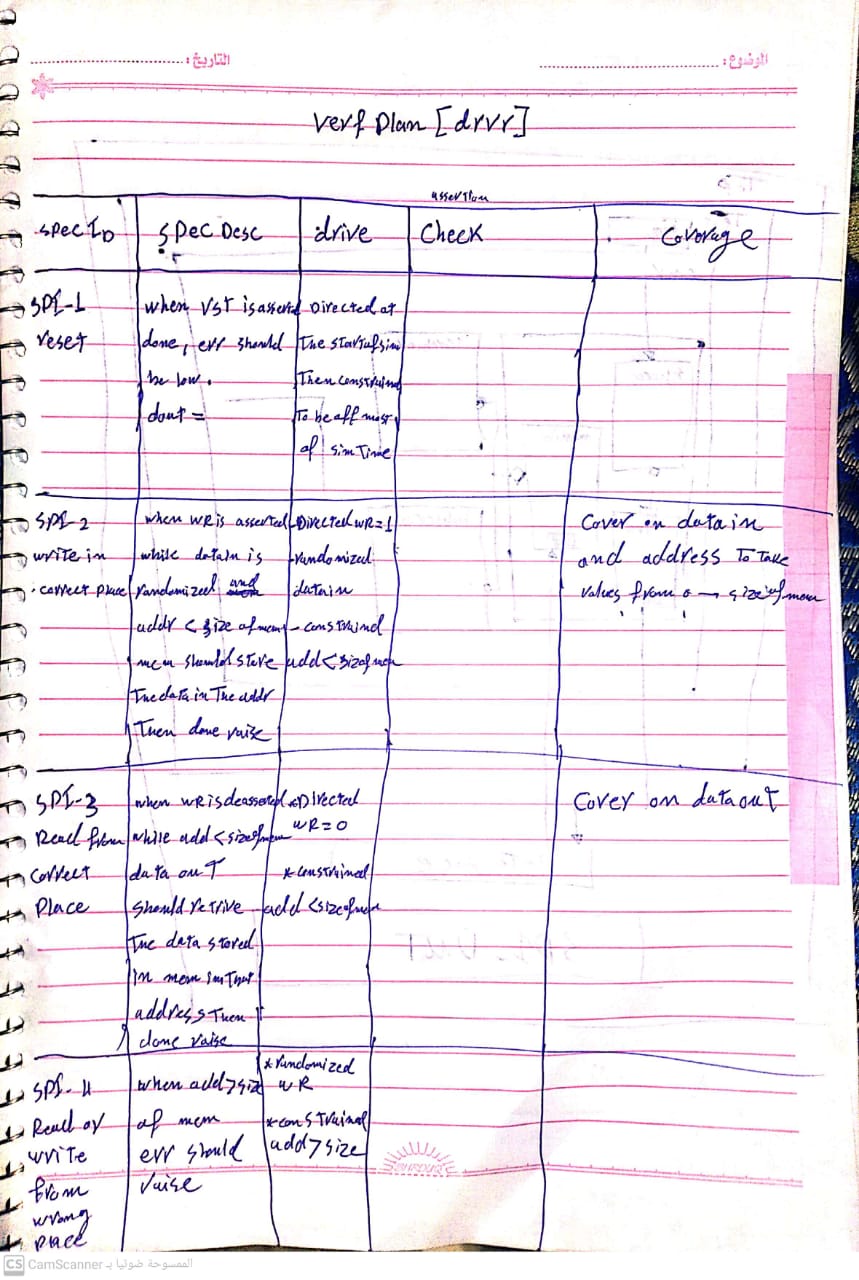 الموضوع:
التاريخ:
Verf Plan [drvr]
assertion
Spec ID
Spec Desc
drive
Check
Coverage
SPI-1
reset
when rst is asserted
done, err should
be low.
dout =
Directed at
The start of sim
Then constrained
To be off most
of sim Time
SPI-2
write in
correct place
when WR is asserted
while datain is
randomized and
addr < size of mem
mem should store
The data in The addr
Then done raise
- Directed WR=1
- randomized
datain
- constrained
add < size of mem
Cover on data in
and address To Take
values from 0 → size of mem
SPI-3
Read from
correct
Place
when WR is deasserted
while add < size of mem
data out
should retrive
The data stored
in mem in That
address Then
done raise
* Directed
WR=0
* constrained
add < size of mem
Cover on data out
SPI-4
Read or
write
from
wrong
place
when add > size
of mem
err should
raise
* randomized
WR
* constrained
add > size
CS CamScanner الممسوحة ضوئيا بـ